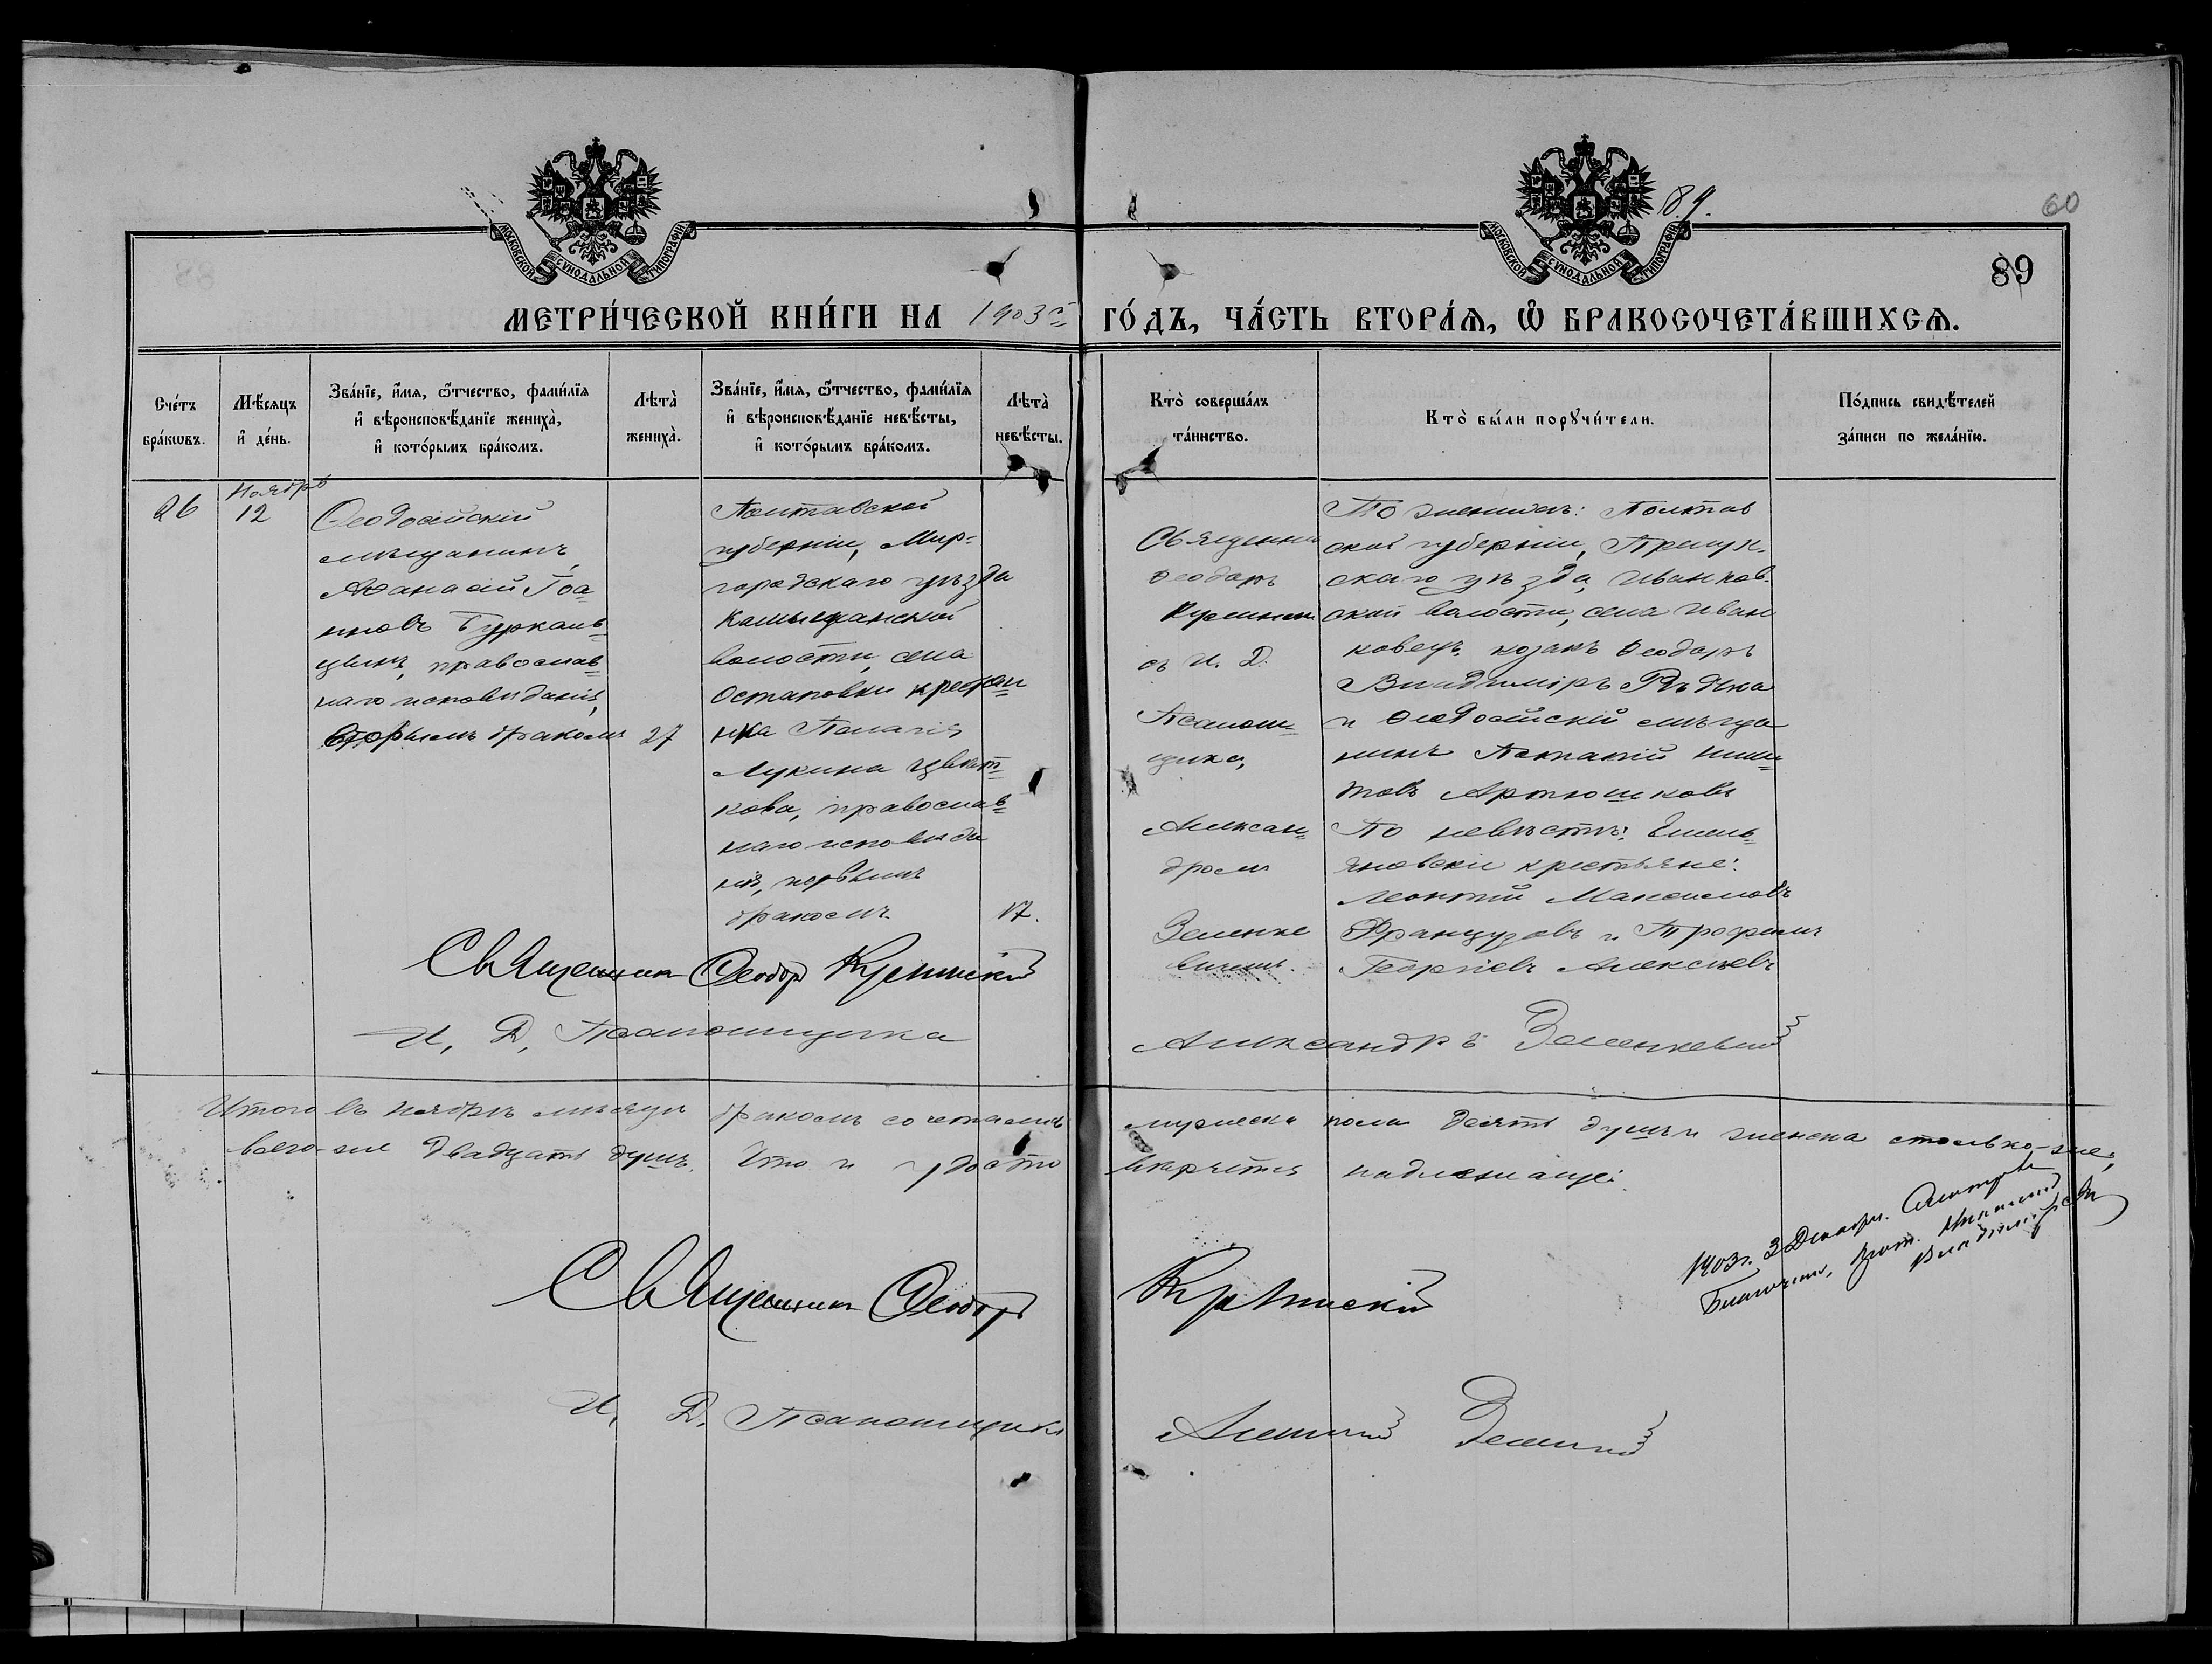 МОСКОВСКОЙ СѴНОДАЛЬНОЙ ТИПОГРАФІИ
МОСКОВСКОЙ СѴНОДАЛЬНОЙ ТИПОГРАФІИ
89.
60
89
МЕТРИ́ЧЕСКОЙ КНИ́ГИ НА 1903й ГО́ДЪ, ЧА́СТЬ ВТОРА́Ѧ, Ѽ БРАКОСОЧЕТА́ВШИХСѦ.
Сче́тъ
бра́кѡвъ.
Мѣ́сяцъ
и҆ де́нь.
Зва́нїе, и҆́мя, ѻ҆́тчество, фами́лїя
и҆ вѣроисповѣ́данїе жениха̀,
и҆ кото́рымъ бра́комъ.
Лѣта̀
жениха̀.
Зва́нїе, и҆́мя, ѻ҆́тчество, фами́лїя
и҆ вѣроисповѣ́данїе невѣ́сты,
и҆ кото́рымъ бра́комъ.
Лѣта̀
невѣ́сты.
Кто̀ соверша́лъ
та́инство.
Кто̀ бы́ли порꙋчи́тели.
По́дпись свидѣ́телей
за́писи по жела́нїю.
26
Ноября
12
Ѳеодосійскій
мѣщанинъ,
Аѳанасій Іоа-
нновъ
православ-
наго исповѣданія,
вторымъ бракомъ
27
Полтавской
губерніи, Мир-
городскаго уѣзда
Комышанской
волости, села
Остаповки крестьян-
ка Пелагія
Лукина Цвѣт-
кова, православ-
наго исповѣда
нія, первымъ
бракомъ.
17.
Священни
Ѳеодоръ
съ И. Д.
Псаломщика,
Алексан-
дромъ
Зеленке
вичемъ.
По женихѣ: Полтав
ской губерніи, Прилук-
скаго уѣзда, Иванков-
ской волости, села Иван
ковецъ, козакъ Ѳеодоръ
Владиміръ Рѣдька
и Ѳеодосійскій мѣща
нинъ Ники-
товъ Артюшковъ
По невѣстѣ: Емель-
яновски крестьяне:
Леонтій Максимовъ
Французовъ и Трофимъ
Георгіевъ Алексѣевъ
Священникъ Ѳеодоръ
И. Д. Псаломщика Александръ Зеленкевич
Итого въ Ноябрѣ мѣсяцѣ бракомъ сочетались мужеска пола десять душъ и женска столько-же,
всего-же двадцать душъ. Что и удосто вѣряется надлежаще.
1903г. 3 Декабря. Смотрѣлъ
Благочин. Прот.
Владимірскій
Священникъ Ѳеодоръ
И. Д. Псаломщика